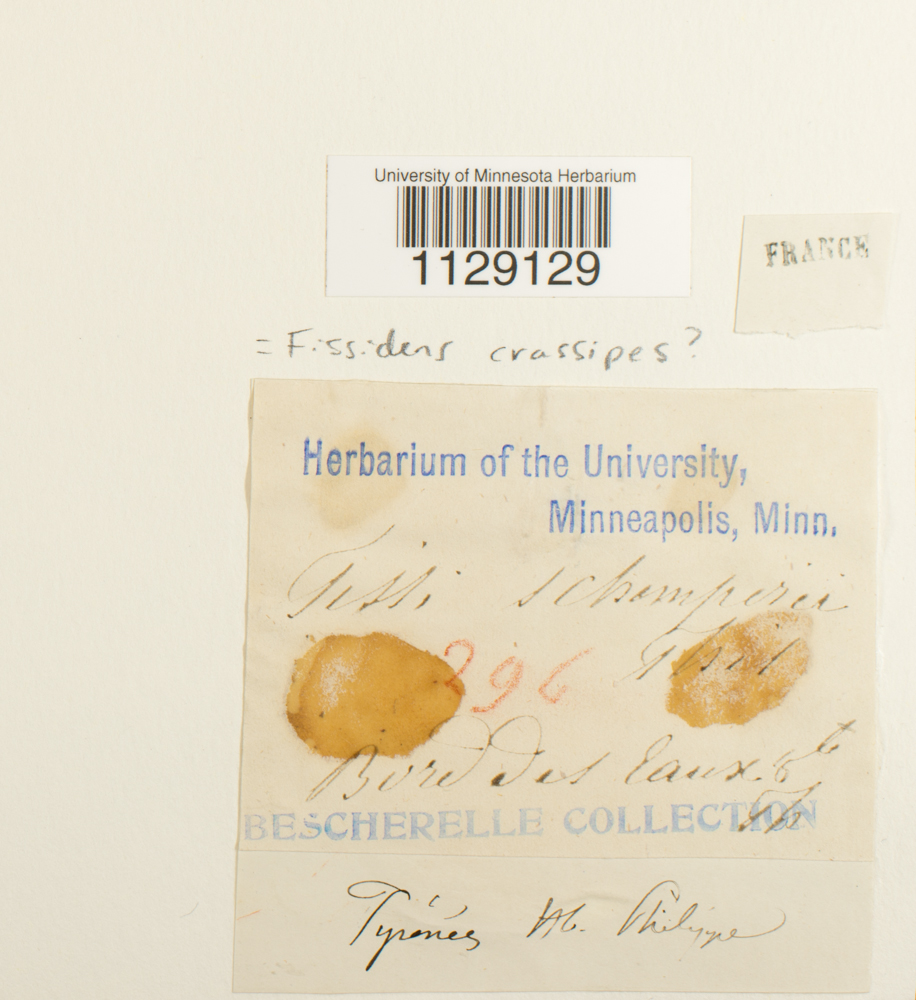 University of Minnesota Herbarium
1129129
FRANCE
= Fissidens crassipes?
Herbarium of the University,
Minneapolis, Minn.
Fissi schimperii
296
Bord des Eaux
BESCHERELLE COLLECTION
Pyrénées Hb. Philippe